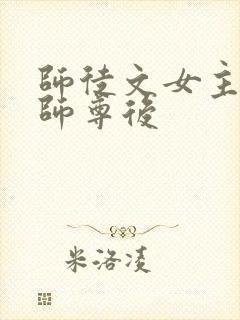 師徒文女主
師尊後
米洛凌